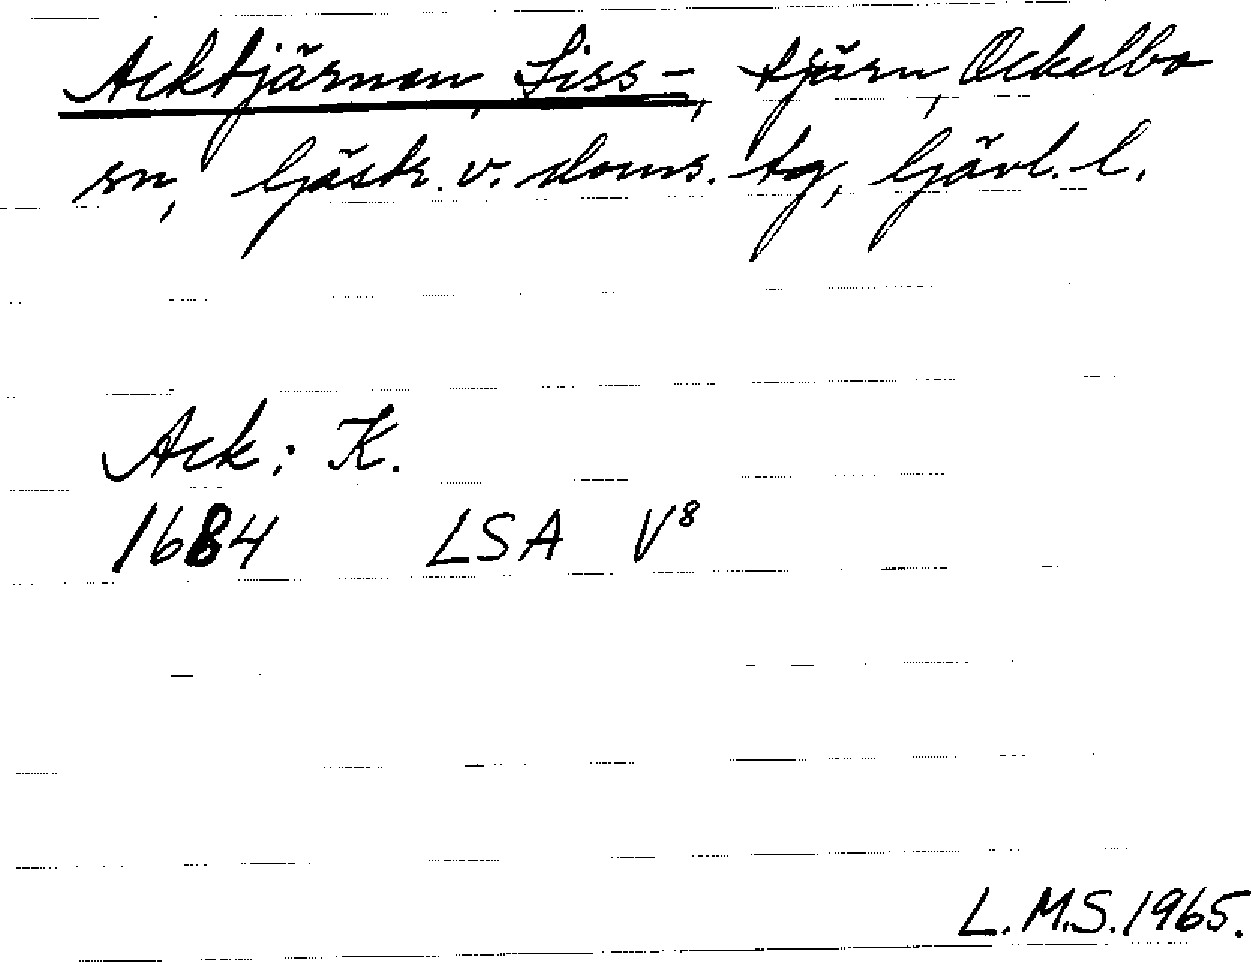 Acktjärnen, Liss-, tjärn, Ockelbo
sn, Gästr. v. doms. tg, Gävl. l.
Ack: K.
1684 LSA V⁸
L.M.S. 1965.